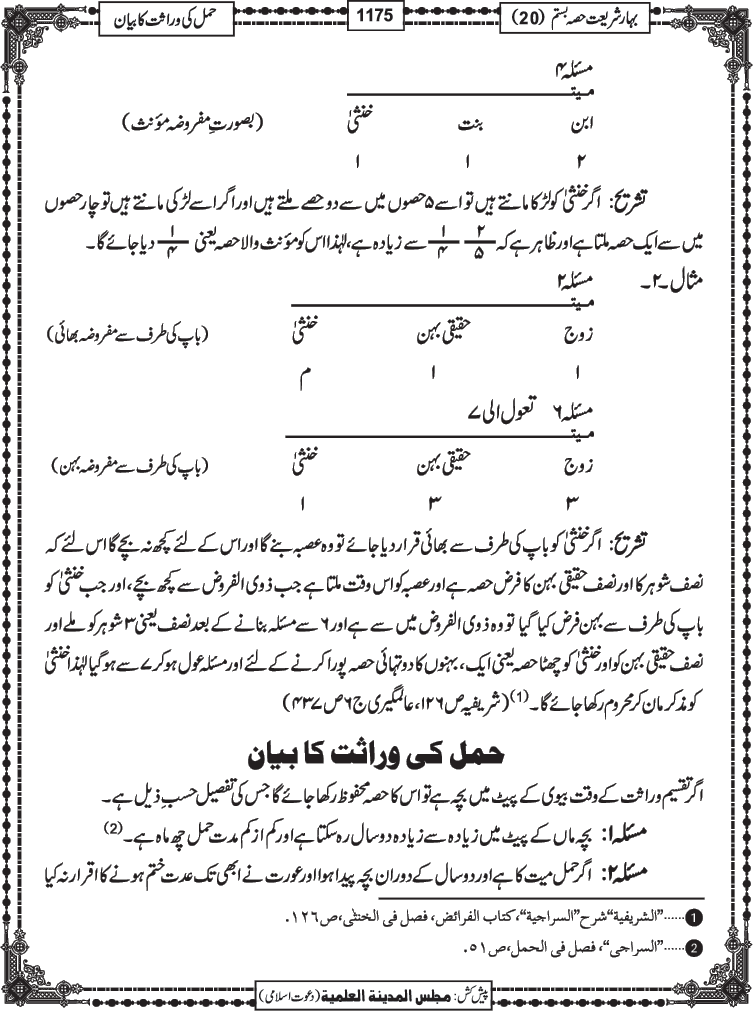 بہار شریعت حصہ بستم (20)
1175
حمل کی وراثت کا بیان
مسئلہ ۴
میتـــ
ابن بنت خنثیٰ (بصورتِ مفروضہ مؤنث)
۲ ۱ ۱
تشریح: اگر خنثیٰ کو لڑکا مانتے ہیں تو اسے ۵ حصوں میں سے دو حصے ملتے ہیں اور اگر اسے لڑکی مانتے ہیں تو چار حصوں
میں سے ایک حصہ ملتا ہے اور ظاہر ہے کہ ۲/۵ ۱/۴ سے زیادہ ہے، لہٰذا اس کو مؤنث والا حصہ یعنی ۱/۴ دیا جائے گا۔
مثال ۔۲۔ مسئلہ ۲
میتـــ
زوج حقیقی بہن خنثیٰ (باپ کی طرف سے مفروضہ بھائی)
۱ ۱ م
مسئلہ ۶ تعول الی ۷
میتـــ
زوج حقیقی بہن خنثیٰ (باپ کی طرف سے مفروضہ بہن)
۳ ۳ ۱
تشریح: اگر خنثیٰ کو باپ کی طرف سے بھائی قرار دیا جائے تو وہ عصبہ بنے گا اور اس کے لئے کچھ نہ بچے گا اس لئے کہ
نصف شوہر کا اور نصف حقیقی بہن کا فرض حصہ ہے اور عصبہ کو اس وقت ملتا ہے جب ذوی الفروض سے کچھ بچے، اور جب خنثیٰ کو
باپ کی طرف سے بہن فرض کیا گیا تو وہ ذوی الفروض میں سے ہے اور ۶ سے مسئلہ بنانے کے بعد نصف یعنی ۳ شوہر کو ملے اور
نصف حقیقی بہن کو اور خنثیٰ کو چھٹا حصہ یعنی ایک، بہنوں کا دو تہائی حصہ پورا کرنے کے لئے اور مسئلہ عول ہو کر ۷ سے ہو گیا لہٰذا خنثیٰ
کو مذکر مان کر محروم رکھا جائے گا۔(1) (شریفیہ ص ۱۲۶، عالمگیری ج ۶ ص ۴۳۷)
حمل کی وراثت کا بیان
اگر تقسیم وراثت کے وقت بیوی کے پیٹ میں بچہ ہے تو اس کا حصہ محفوظ رکھا جائے گا جس کی تفصیل حسبِ ذیل ہے۔
مسئلہ ۱: بچہ ماں کے پیٹ میں زیادہ سے زیادہ دو سال رہ سکتا ہے اور کم از کم مدت حمل چھ ماہ ہے۔(2)
مسئلہ ۲: اگر حمل میت کا ہے اور دو سال کے دوران بچہ پیدا ہوا اور عورت نے ابھی تک عدت ختم ہونے کا اقرار نہ کیا
1 ......"الشریفیة" شرح "السراجیة"، کتاب الفرائض، فصل فی الخنثی، ص ۱۲۶.
2 ......"السراجی"، فصل فی الحمل، ص ۵۱.
پیش کش: مجلس المدینة العلمیة (دعوت اسلامی)